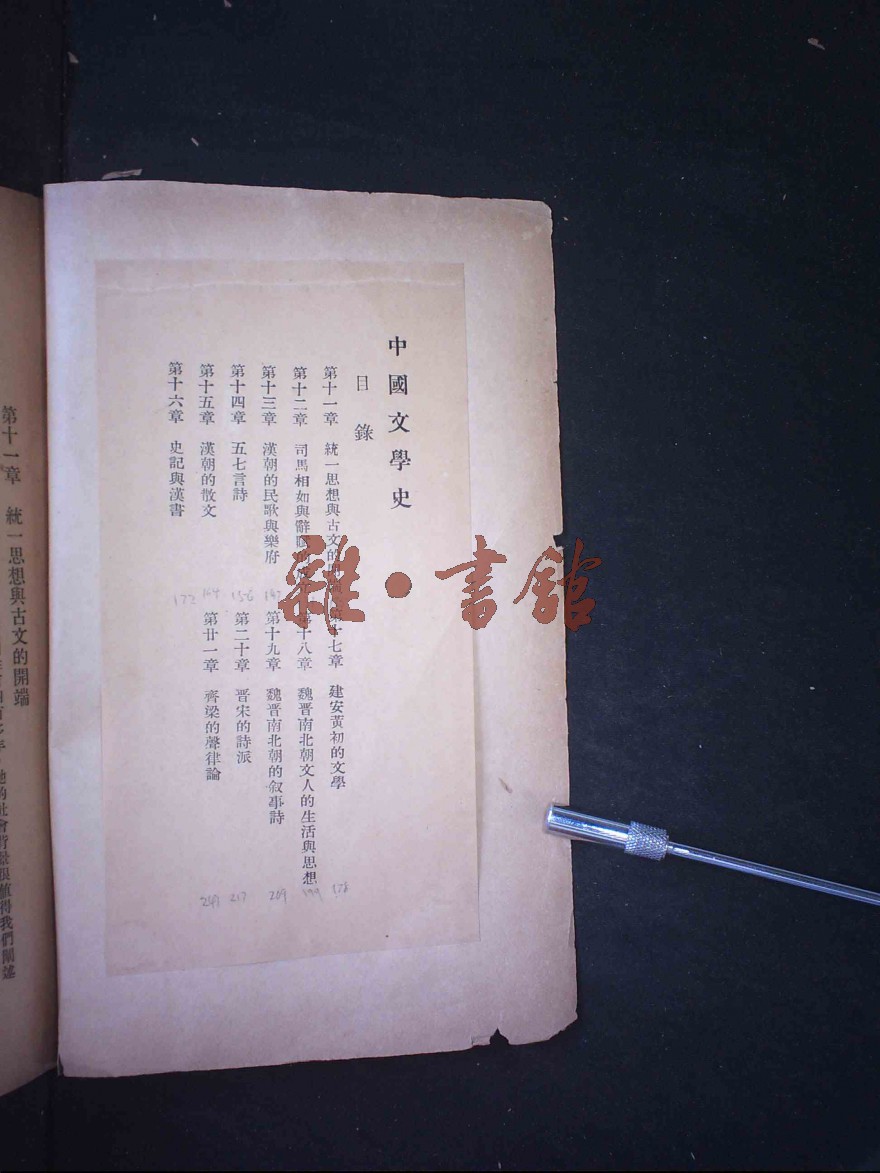 中國文學史
目錄
第十一章 統一思想與古文的開端
第十二章 司馬相如與辭
第十三章 漢朝的民歌與樂府
第十四章 五七言詩
第十五章 漢朝的散文
第十六章 史記與漢書
第十七章 建安黃初的文學
第十八章 魏晋南北朝文人的生活與思想
第十九章 魏晋南北朝的敘事詩
第二十章 晋宋的詩派
第廿一章 齊梁的聲律論
172
156
178
199
209
217
雜·書館
第十一章 統一思想與古文的開端
她的社會背景很值得我們闡述